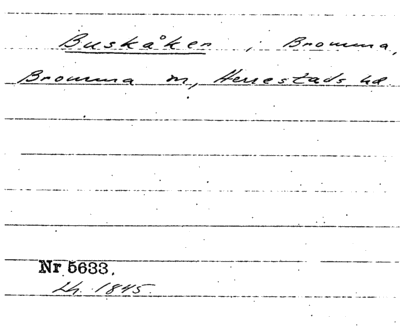 Buskåker, Bromma,
Bromma sn, Herrestads hd
Nr 5633.
Lh. 1845.